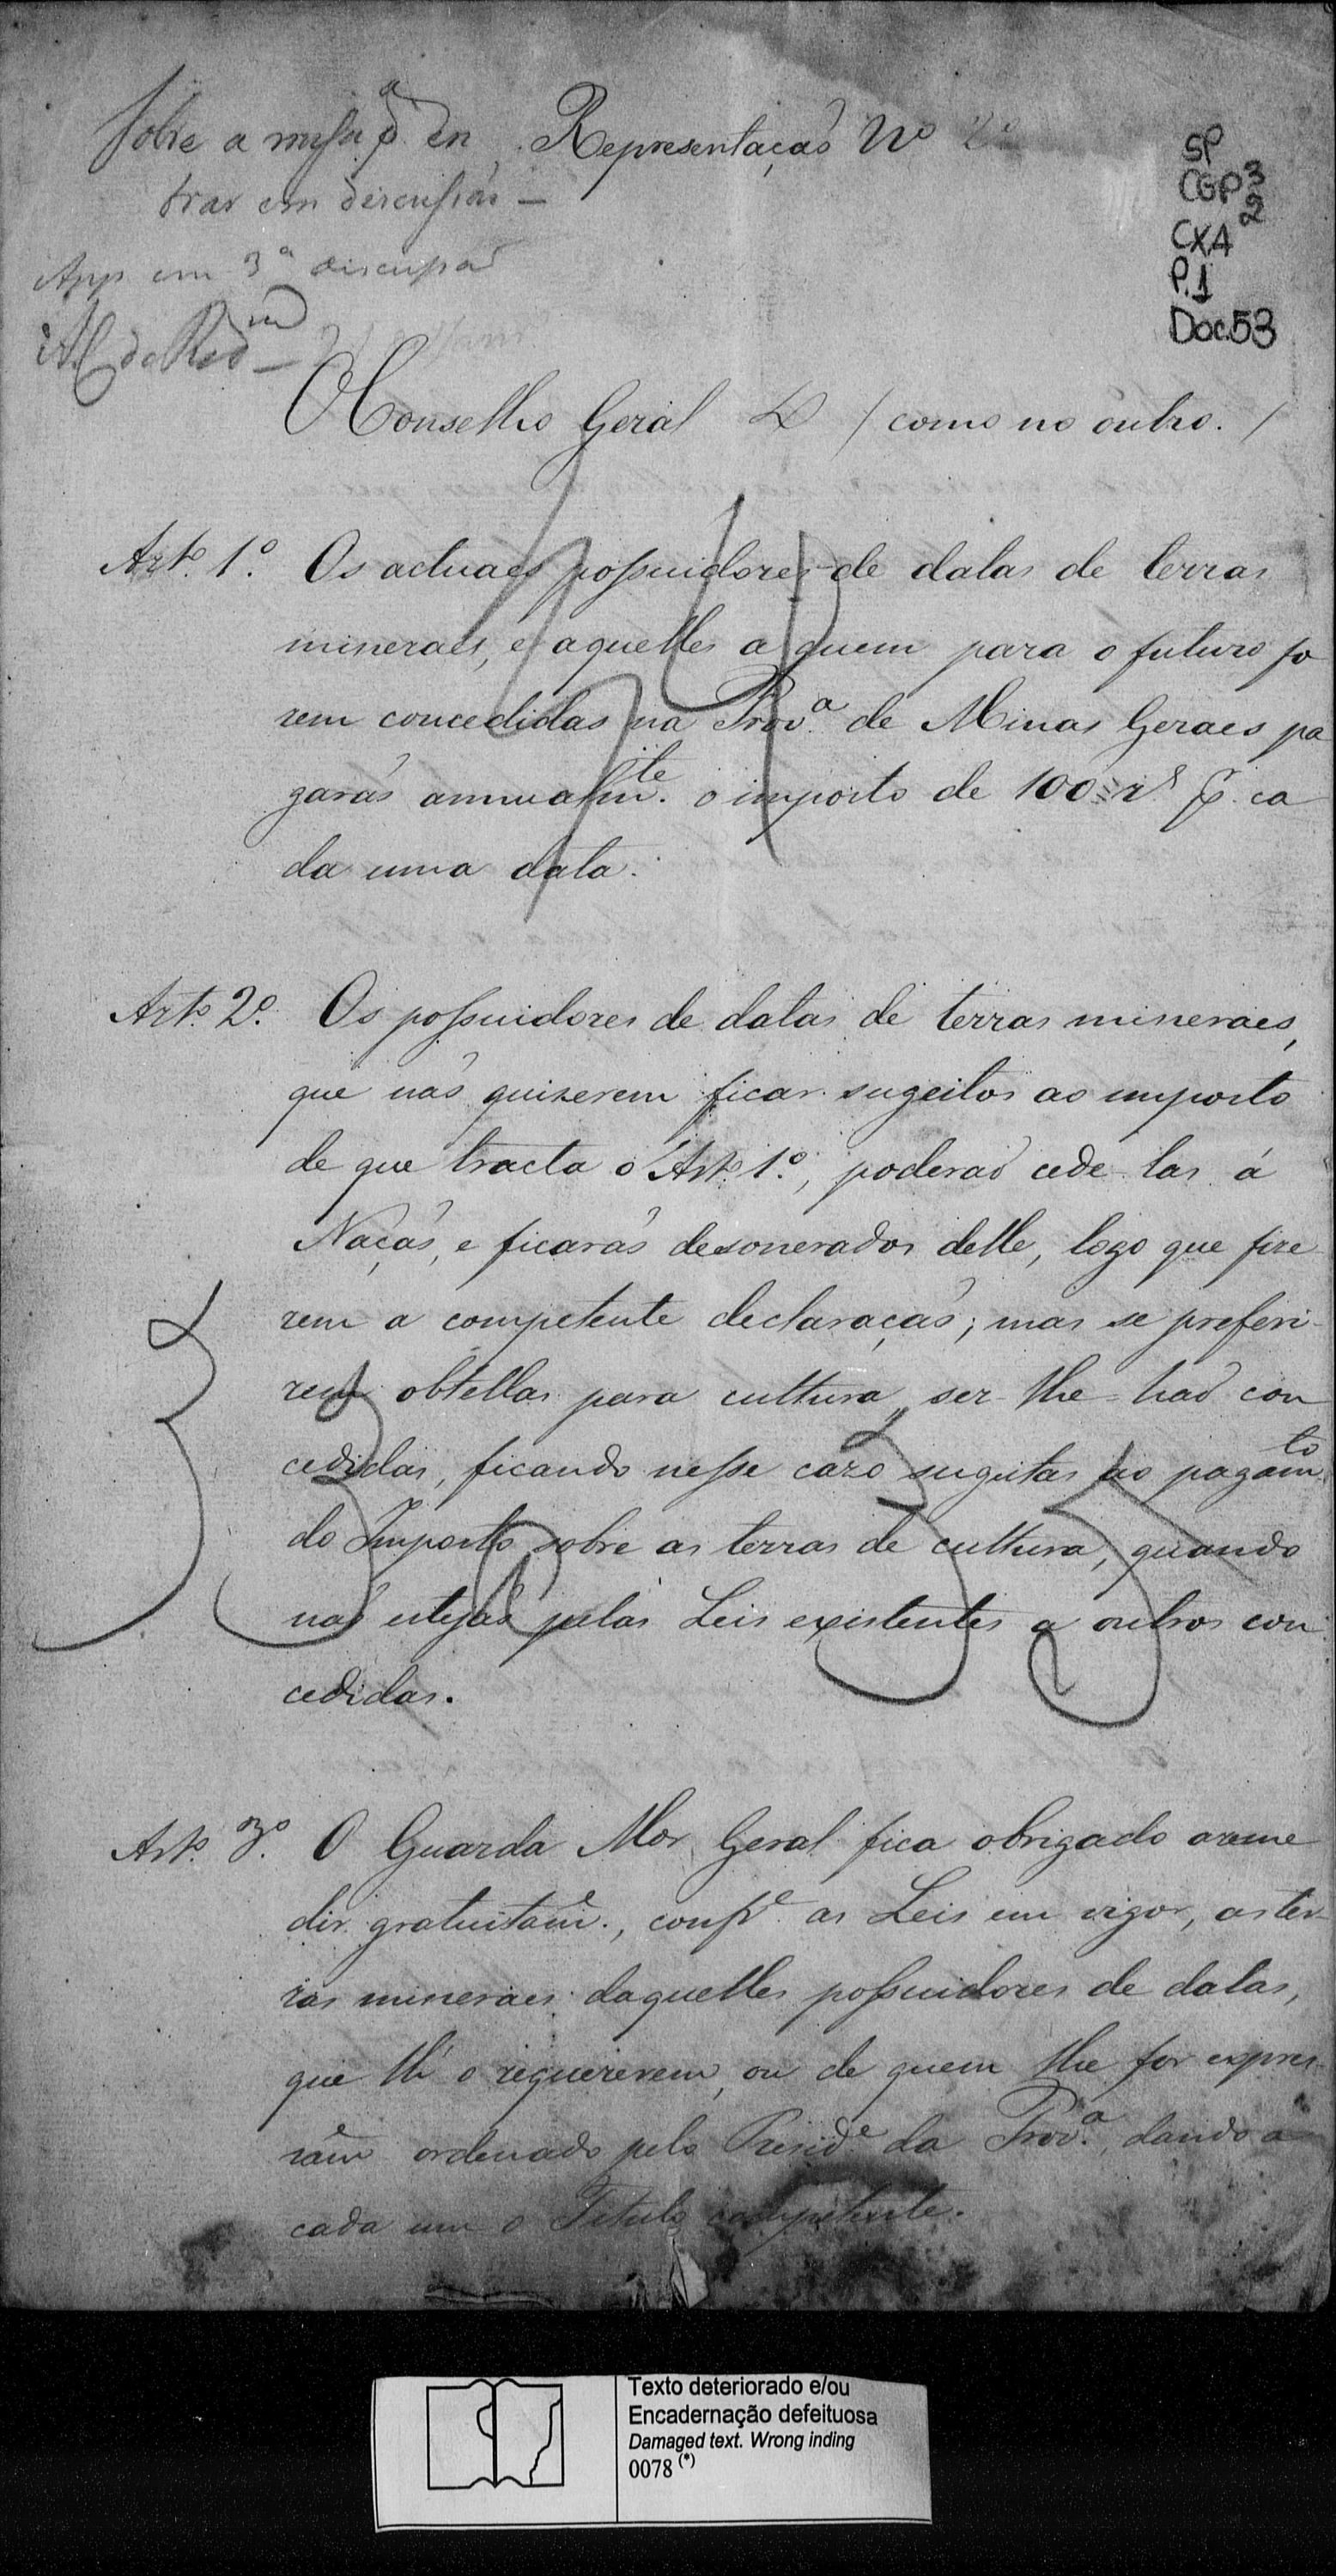 Sobre a mesa pª en
trar em discussão –
App em 3ª discussão
A C de Redm –
Representação Nº 2º
SP
CGP 3
2
CX.4
P.1
Doc.53
O Conselho Geral & / como no outro. /
Artº 1º. Os actuaes possuidores de datas de terras
mineraes, e aquelles a quem para o futuro fo
rem concedidas na Provª de Minas Geraes pa
garão annualmte. o imposto de 100 rs p. ca
da uma data.
Artº 2º. Os possuidores de datas de terras mineraes,
que não quizerem ficar sugeitos ao imposto
de que tracta o Artº 1º, poderão cede-las á
Nação, e ficarão desonerados delle, logo que fize
rem a competente declaração; mas se preferi-
rem obtellas para cultura, ser-lhe-hão con
cedidas, ficando nesse cazo sugeitas ao pagamto
do Imposto sobre as terras de cultura, quando
não estejão pelas Leis existentes a outros con
cedidas.
Artº 3º. O Guarda Mor Geral fica obrigado a me
dir gratuitame., confe as Leis em vigor, as ter-
ras mineraes daquelles possuidores de datas,
que lh'o requererem, ou de quem lhe for expres
same ordenado pelo Preside da Provª, dando a
cada um o Titulo competente.
Texto deteriorado e/ou
Encadernação defeituosa
Damaged text. Wrong inding
0078 (*)